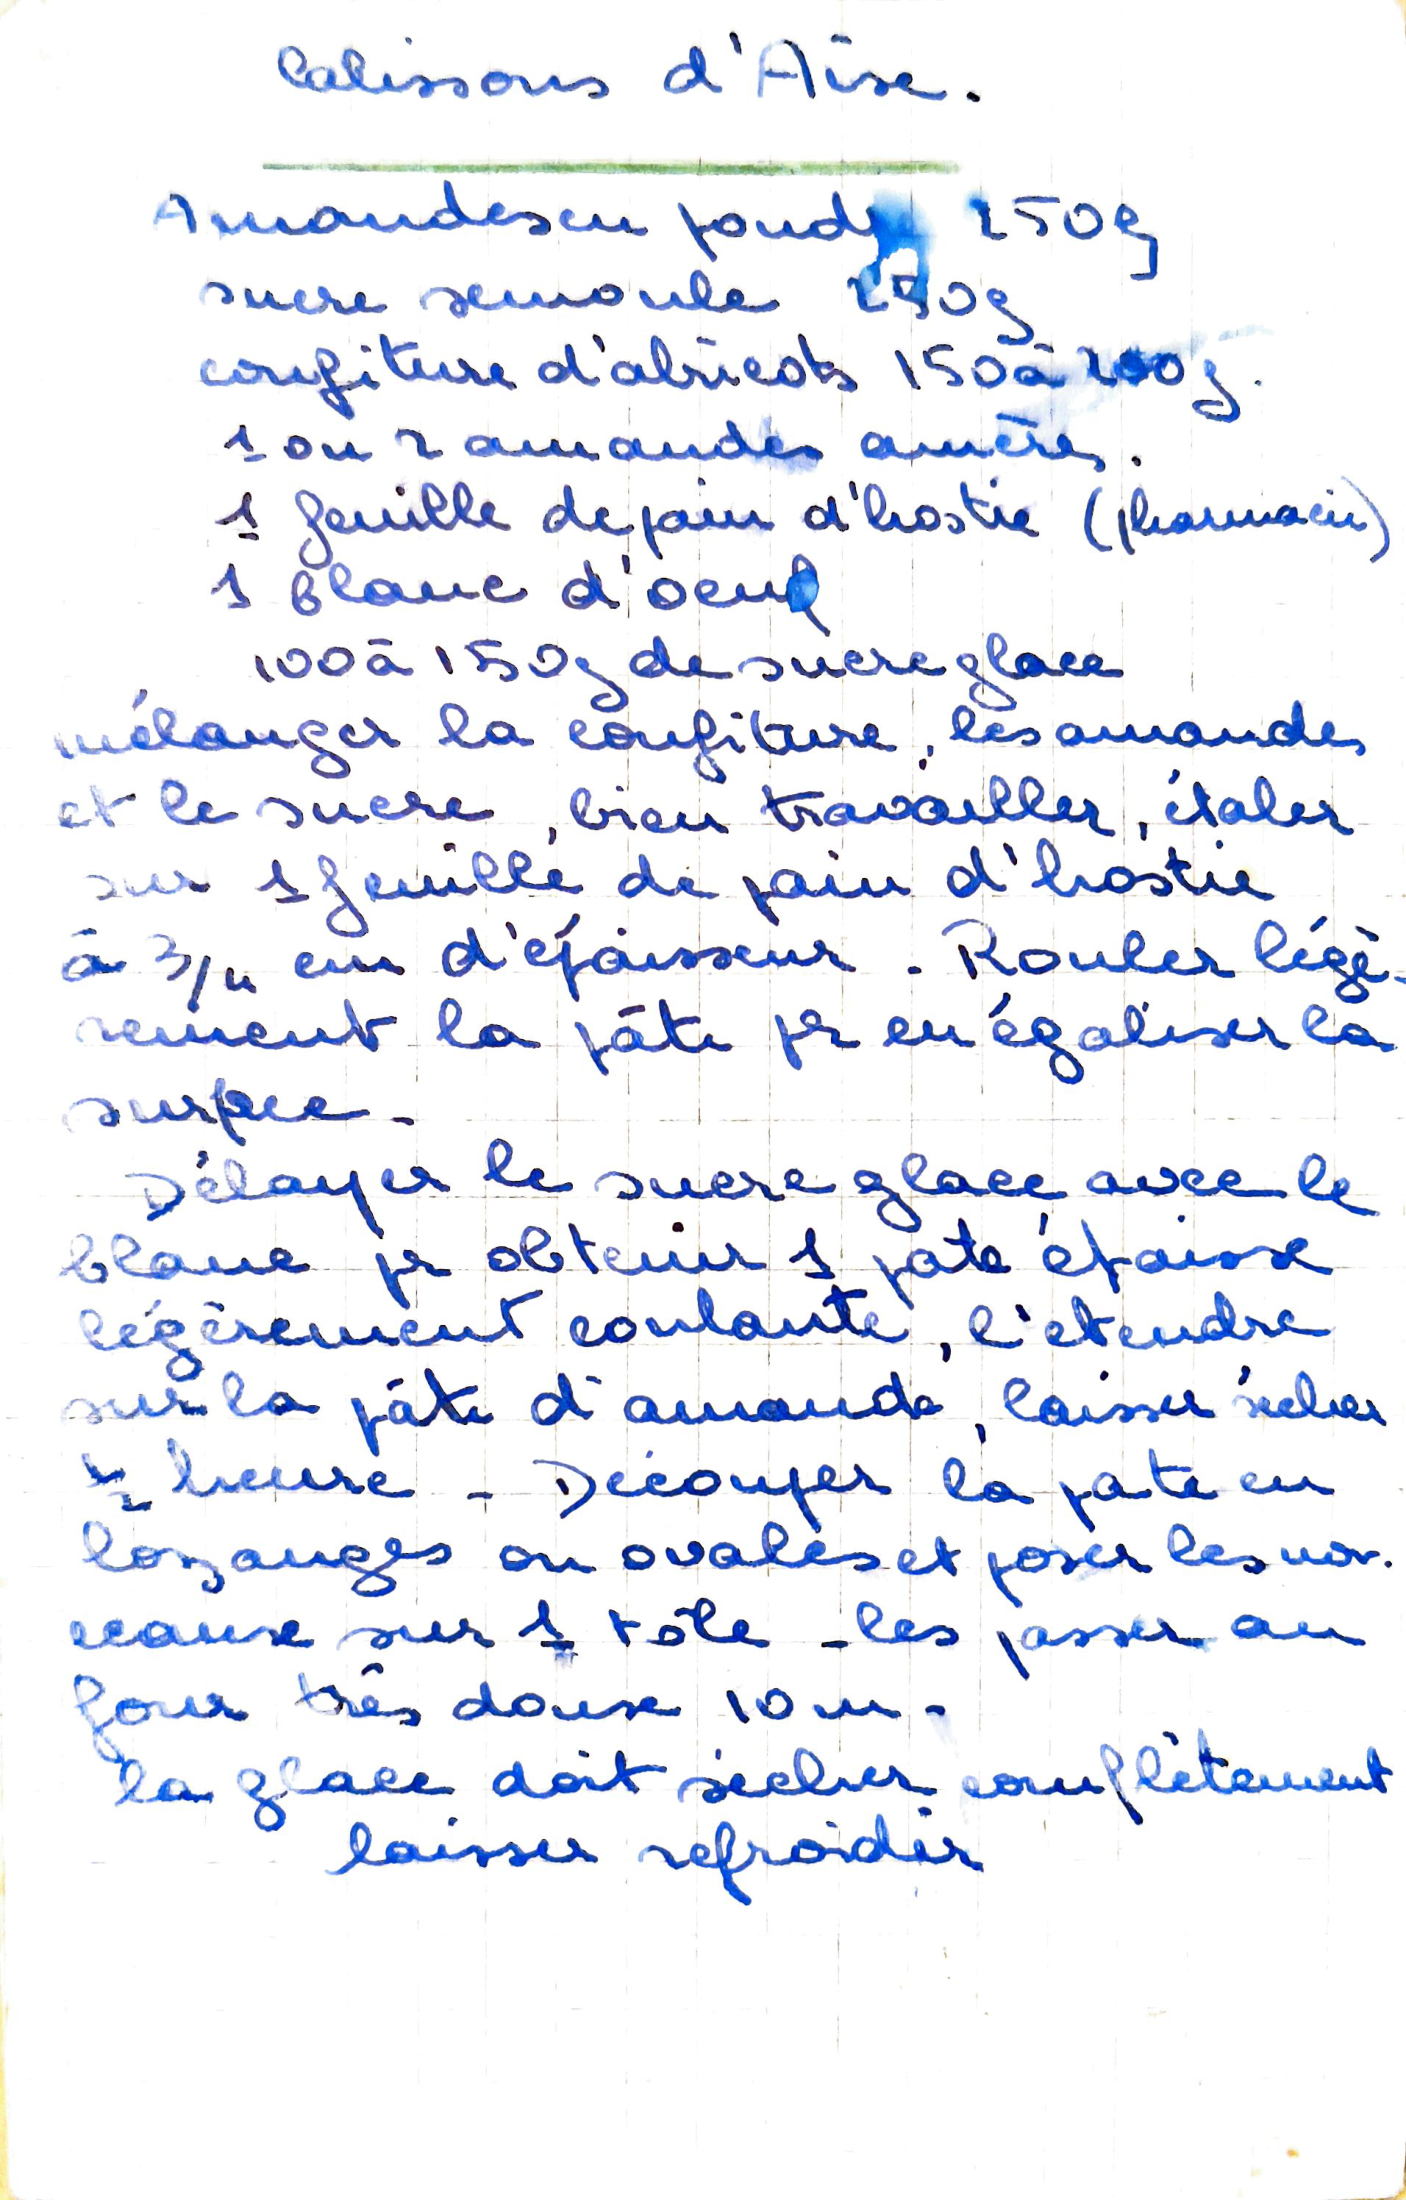 Calissons d'Aix.
Amandes en poudre 250g
sucre semoule 250g
confiture d'abricots 150 à 200g.
1 ou 2 amandes amères.
1 feuille de pain d'hostie (pharmacie)
1 blanc d'oeuf
100 à 150g de sucre glace
mélanger la confiture, les amandes
et le sucre, bien travailler, étaler
sur 1 feuille de pain d'hostie
à 3/4 cm d'épaisseur. Rouler légè-
rement la pâte pr en égaliser la
surface -
Délayer le sucre glace avec le
blanc pr obtenir 1 pate épaisse
légèrement coulante, l'etendre
sur la pâte d'amande, laisser sécher
1/2 heure - Découper la pate en
lozanges ou ovales et poser les mor.
ceaux sur 1 tôle - les passer au
four très doux 10 m -
la glace doit sécher complètement
laisser refroidir